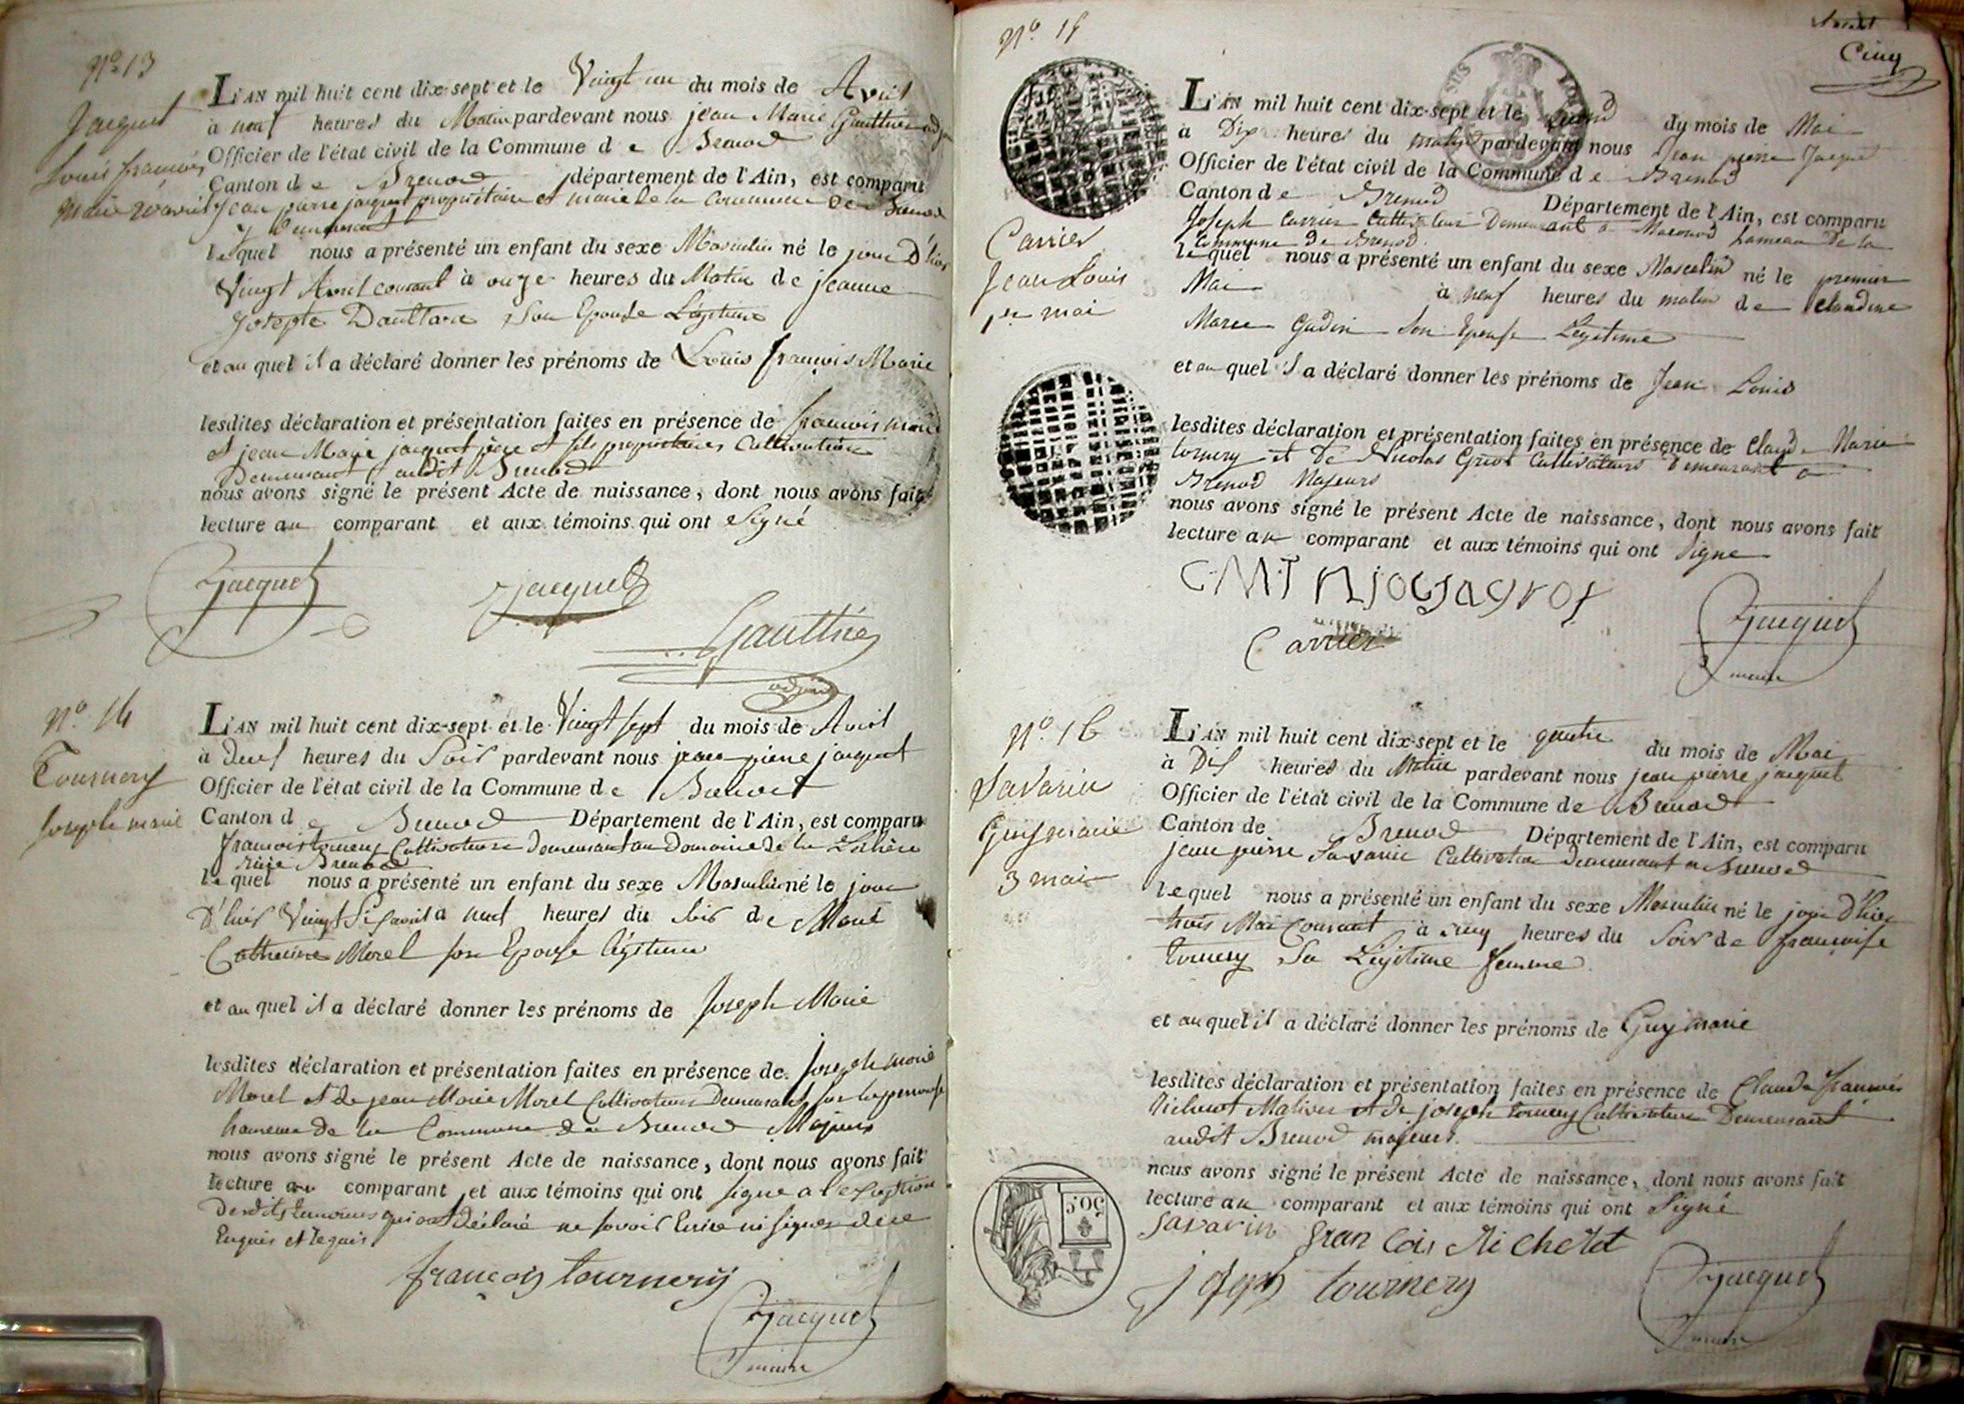 N.o 13
Jacquet
Louis françois
Marie 20 avril
L'AN mil huit cent dix-sept et le Vingt un du mois de Avril
à neuf heures du Matin pardevant nous jean Marie Gauthier adj
Officier de l'état civil de la Commune de Brenod
Canton de Brenod département de l'Ain, est comparu
Jean pierre jacquet propriétaire et maire de la Commune de Brenod
y demeurant
lequel nous a présenté un enfant du sexe Masculin né le jour D'hier
Vingt Avril courant à onze heures du Matin de jeanne
Josepte Son Epouse Légitime
et au quel il a déclaré donner les prénoms de Louis françois Marie
lesdites déclaration et présentation faites en présence de françois marie
et jean Marie jacquet père et fils propriétaires Cultivateurs
Demeurant audit Brenod
nous avons signé le présent Acte de naissance, dont nous avons fait
lecture au comparant et aux témoins qui ont Signé
Jacquet
Jacquet
Gauthier
adjoint
N.o 14
Tournery
Joseph marie
L'AN mil huit cent dix-sept et le Vingt sept du mois de Avril
à deux heures du Soir pardevant nous jean pierre jacquet
Officier de l'état civil de la Commune de Brenod
Canton de Brenod Département de l'Ain, est comparu
francois tournery Cultivateur Demeurant au Domaine de la
rière Brenod
lequel nous a présenté un enfant du sexe Masculin né le jour
D'hier Vingt Six avril à neuf heures du soir de Marie
Catherine Morel son Epouse légitime
et au quel il a déclaré donner les prénoms de Joseph Marie
lesdites déclaration et présentation faites en présence de Joseph marie
Morel et de jean Marie Morel Cultivateurs Demeurant sur
hameau de la Commune de Brenod Majeurs
nous avons signé le présent Acte de naissance, dont nous avons fait
lecture au comparant et aux témoins qui ont signé a l'exception
Desdits temoins qui ont Déclaré ne savoir Ecrire ni signer de ce
Enquis et requis
françois tournery
Jacquet
maire
Cinq
N.o 15
Carrier
Jean Louis
1er mai
L'AN mil huit cent dix-sept et le second du mois de Mai
à Dix heures du matin pardevant nous Jean pierre Jacquet
Officier de l'état civil de la Commune de Brenod
Canton de Brenod Département de l'Ain, est comparu
Joseph Carrier Cultivateur Demeurant à Maconod hameau De la
Commune de Brenod
lequel nous a présenté un enfant du sexe Masculin né le premier
Mai à neuf heures du matin de Claudine
Marie Gudin son Epouse Légitime
et au quel il a déclaré donner les prénoms de Jean Louis
lesdites déclaration et présentation faites en présence de Claude Marie
tornery et De Nicolas Griot Cultivateurs Demeurant à
Brenod Majeurs
nous avons signé le présent Acte de naissance, dont nous avons fait
lecture au comparant et aux témoins qui ont Signé
C.M.T
Carrier
Jacquet
maire
N.o 16
Savarin
Guy marie
3 mai
L'AN mil huit cent dix-sept et le quatre du mois de Mai
à Dix heures du Matin pardevant nous jean pierre jacquet
Officier de l'état civil de la Commune de Brenod
Canton de Brenod Département de l'Ain, est comparu
jean pierre Savarin Cultivateur Demeurant a Brenod
lequel nous a présenté un enfant du sexe Masculin né le jour d'hier
trois Mai Courant à cinq heures du Soir de françoise
tornery Sa Légitime femme
et au quel il a déclaré donner les prénoms de Guy marie
lesdites déclaration et présentation faites en présence de Claude françois
et de joseph tornery Cultivateurs Demeurant
audit Brenod majeurs.
nous avons signé le présent Acte de naissance, dont nous avons fait
lecture au comparant et aux témoins qui ont Signé
Savarin fran Cois Richelot
joseph tournery
50 C
Jacquet
maire